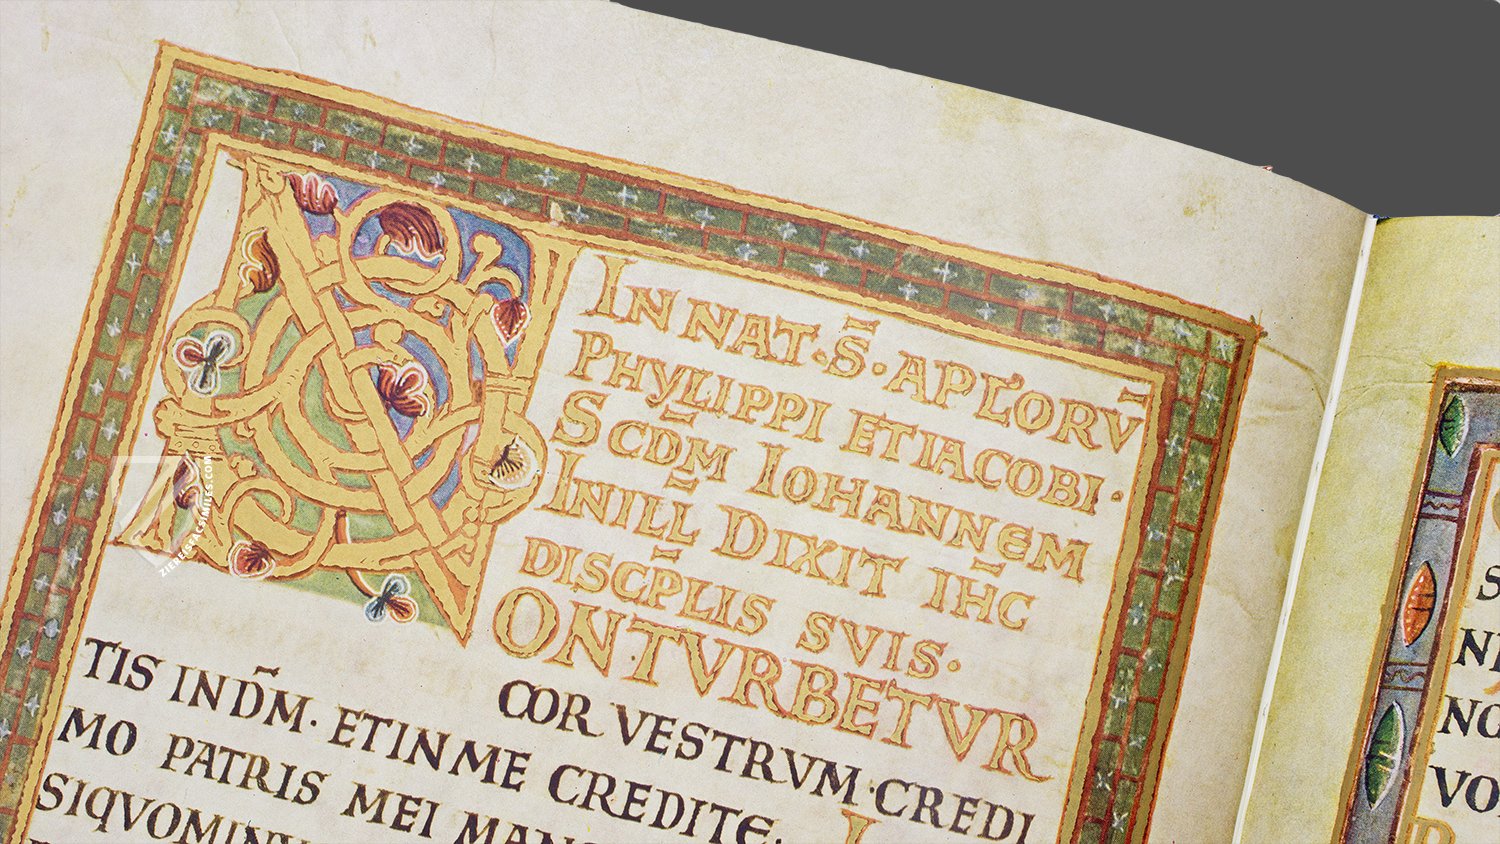 N
IN NAT · S̄ · APLORV̄
PHYLIPPI ET IACOBI ·
SCDM̄ IOHANNEM
IN ILL̄ DIXIT IH̄C
DISCP̄LIS SVIS ·
ON TVRBETVR
COR VESTRVM · CREDI
TIS IN DM̄ · ET IN ME CREDITE. I
MO PATRIS MEI
SI QVO
ZIEREIS FACSIMILES.com